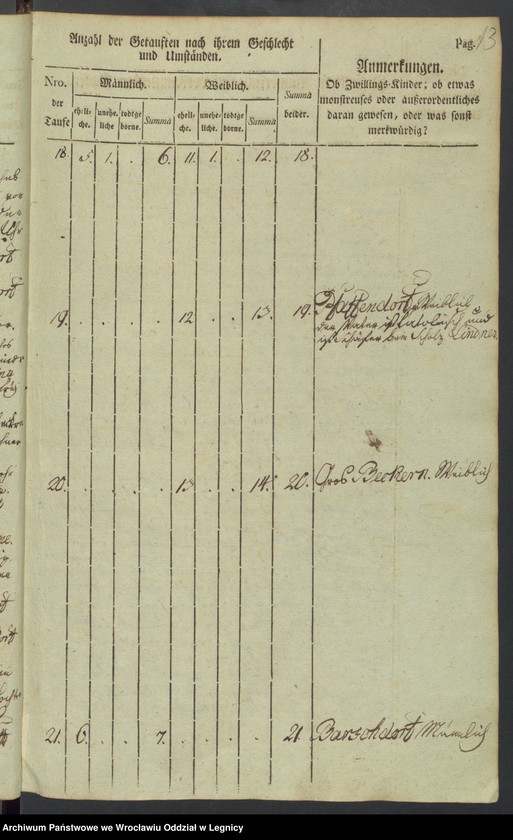 Anzahl der Getauften nach ihrem Geschlecht
und Umständen.
Pag. 13
Anmerkungen.
Ob Zwillings-Kinder; ob etwas
monstreuses oder außerordentliches
daran gewesen, oder was sonst
merkwürdig?
Nro.
der
Taufe
Männlich.
Weiblich.
Summa
beider.
eheli-
che.
unehe-
liche
todtge
borne.
Summa
eheli-
che.
unehe-
liche.
todtge
borne.
Summa
18. 5. 1. . 6. 11. 1. . 12. 18.
19. . . . . 12. . . 13. 19. Pfaffendorf Weiblich
der Vater ist katolisch und
Schäfer Scholz Lindner.
20. . . . . 13. . . 14. 20. Gros Beckern. Weiblich
21. 6. . . 7. . . . . 21. Barschdorf Männlich
Archiwum Państwowe we Wrocławiu Oddział w Legnicy